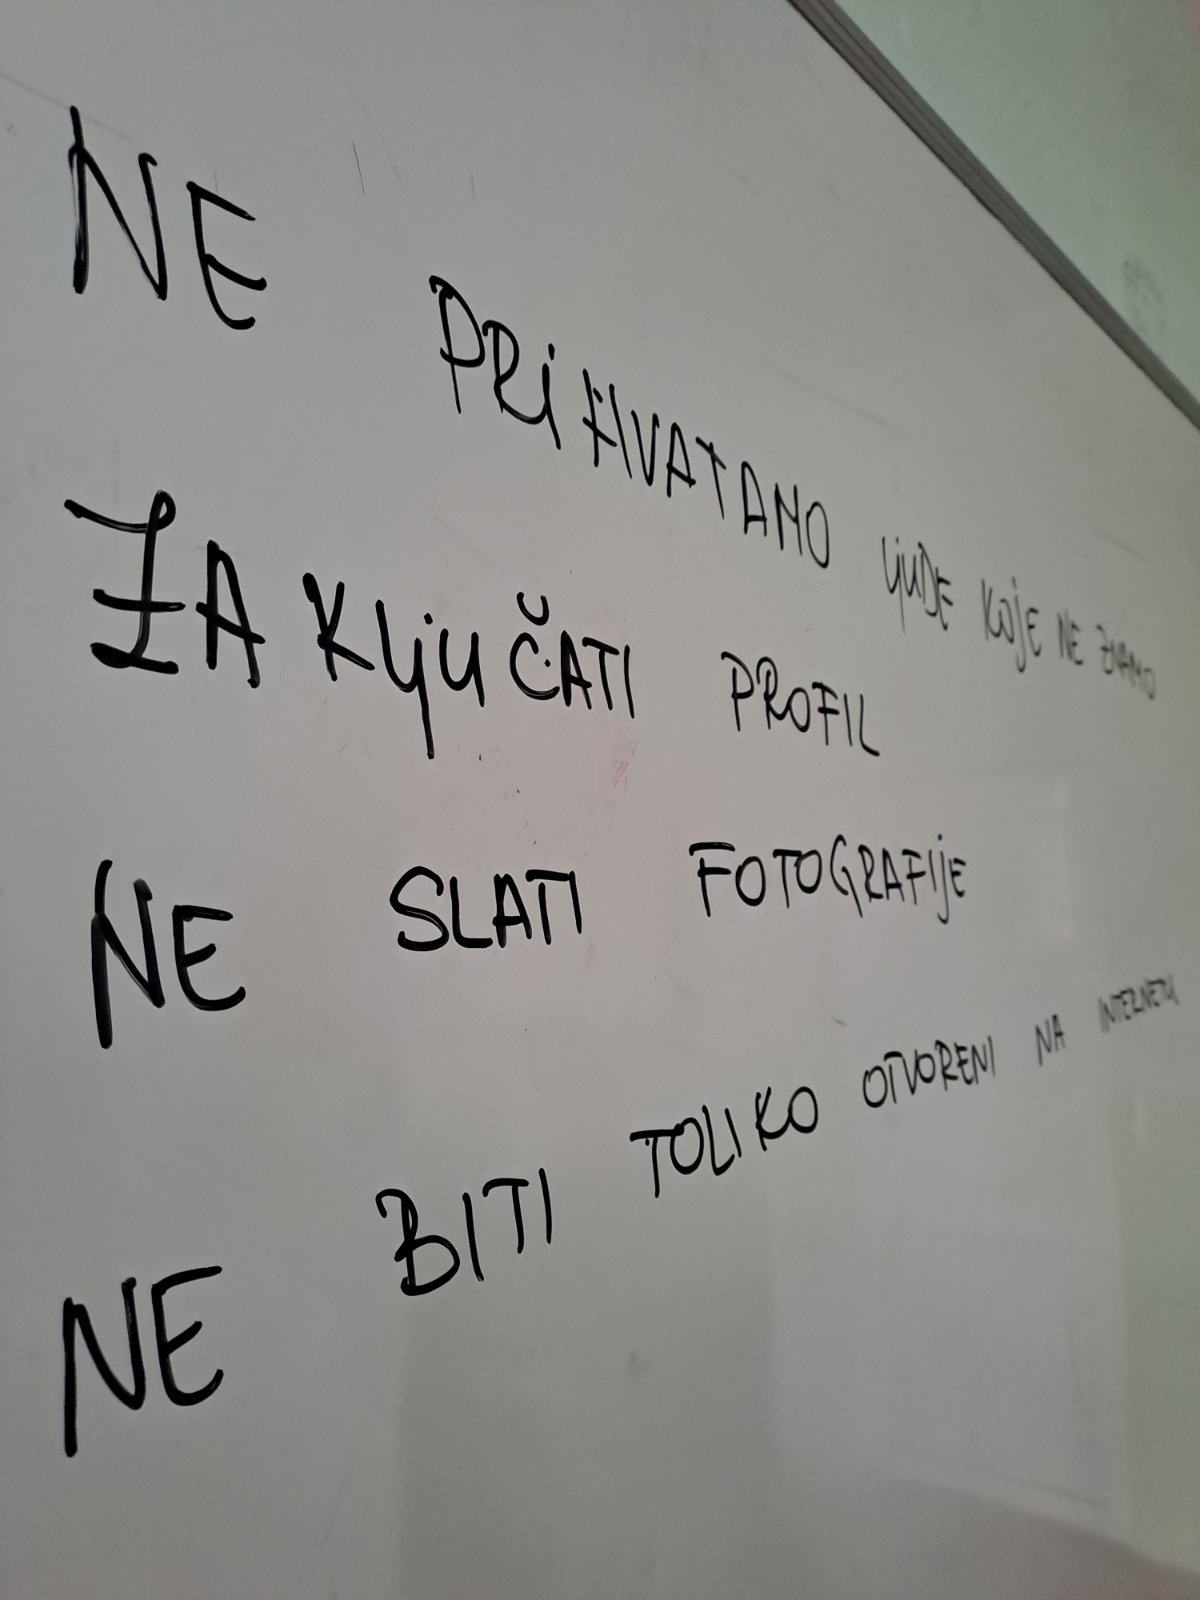 NE PRIHVATAMO LJUDE KOJE NE ZNAMO
ZAKLJUČATI PROFIL
NE SLATI FOTOGRAFIJE
NE BITI TOLIKO OTVORENI NA INTERNETU